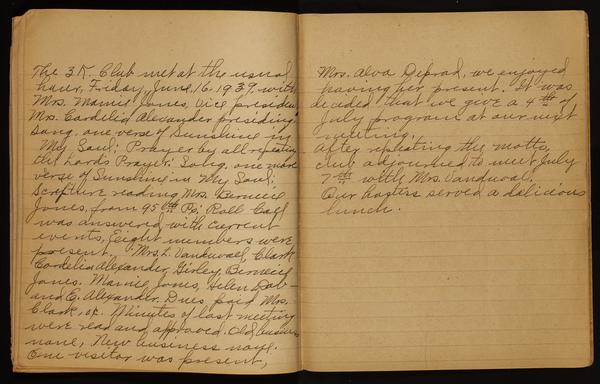 The 3 K. Club met at the usual
hour, Friday, June, 16-1939, with
Mrs. Mamie Jones, Vice president
Mrs. Cordelia Alexander presiding
Song, one verse of Sunshine in
My Soul; Prayer by all repeating
the Lords Prayer; Song, one more
verse of Sunshine in My Soul;
Scripture reading Mrs. Berniece
Jones, from 95th Ps; Roll Call
was answered with current
events, Eight members were
present. Mrs. L. Clark
Cordelia Alexander, Girley, Berniece
Jones. Mamie Jones, Helen
and E. Alexander. Dues paid Mrs.
Clark, Minutes of last meeting
were read and approved. Old business
none, New business none.
One visitor was present,
Mrs. Alva we enjoyed
having her present. It was
decided that we give a 4th of
July program at our next
meeting.
After repeating the motto,
club adjourned to meet July
7th with Mrs.
Our hostess served a delicious
lunch.